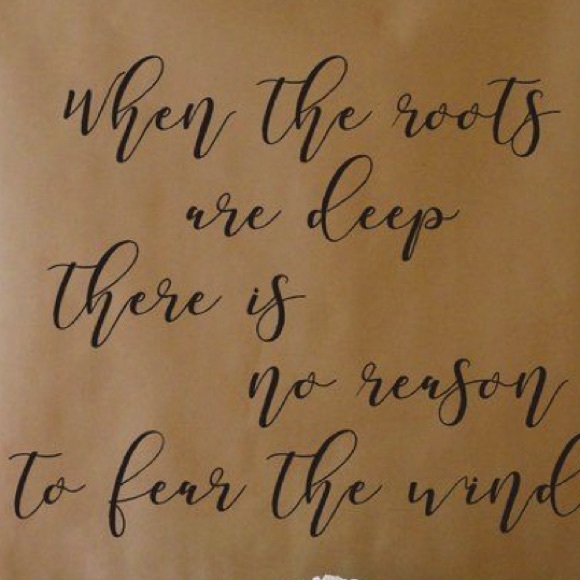 When the roots
are deep
there is
no reason
to fear the wind